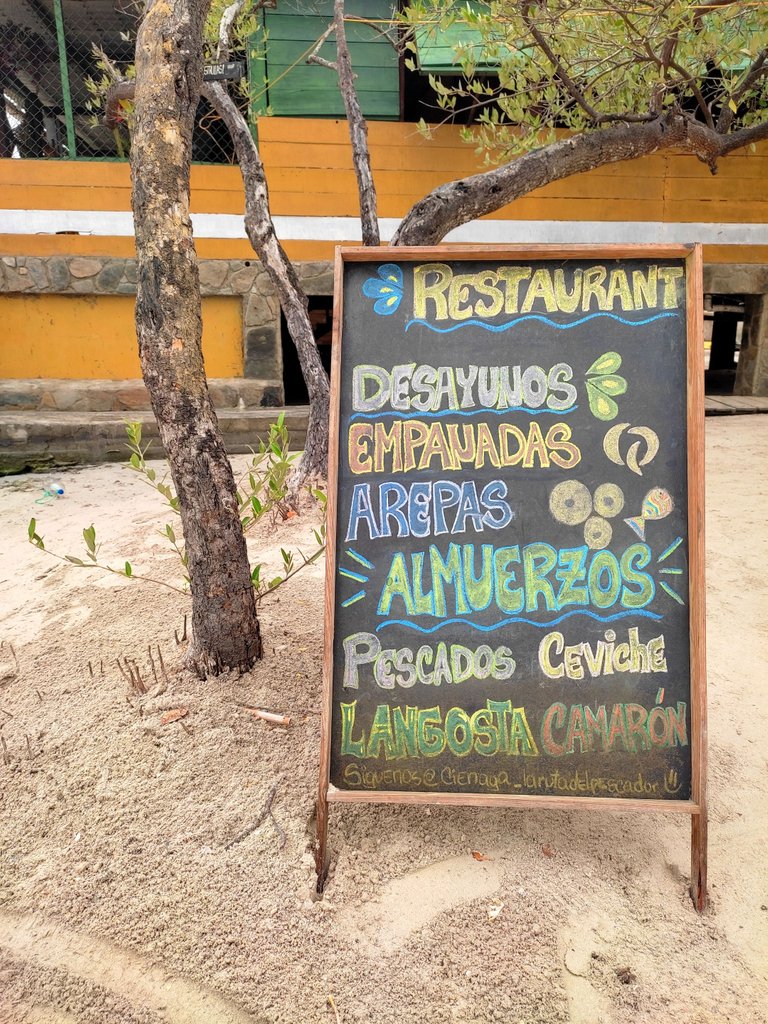 RESTAURANT
DESAYUNOS
EMPANADAS
AREPAS
ALMUERZOS
PESCADOS CEVichE
LANGOSTA CAMARÓN
Siguenos@ Cienaga_larutadelpescador